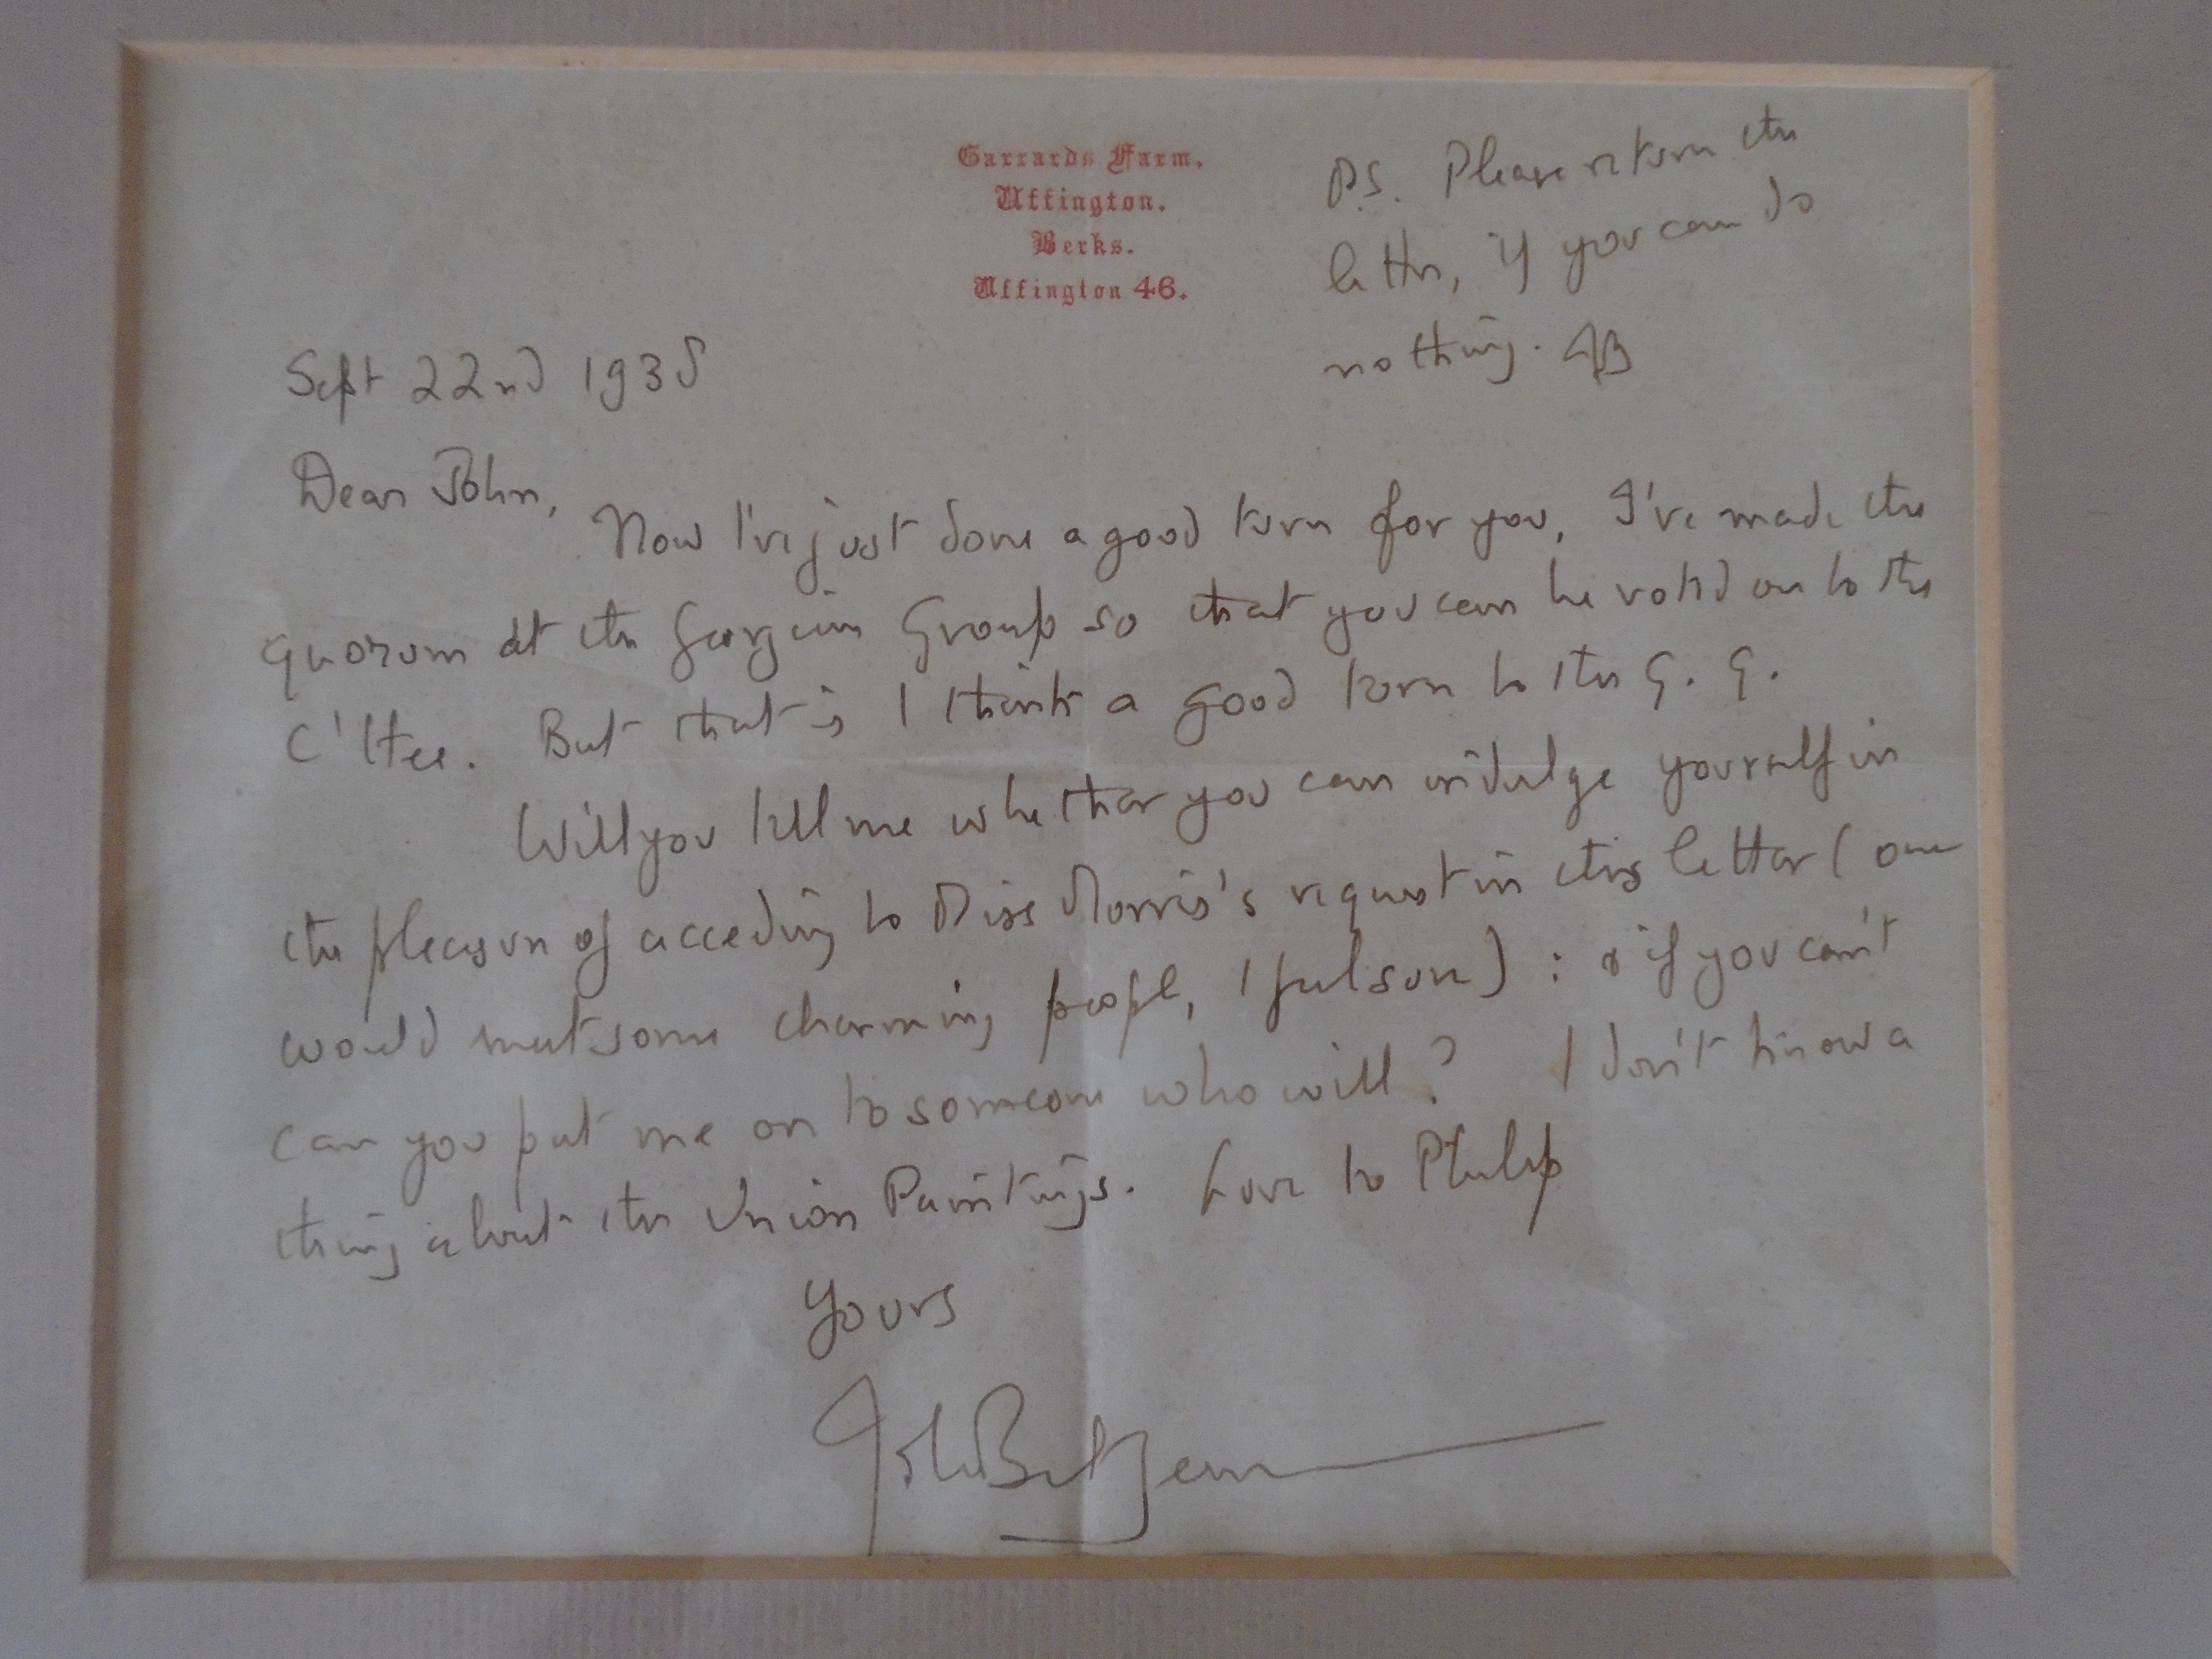 Garrards Farm,
Uffington.
Berks.
Uffington 46.
P.S. Please return the
letter, if you can do
nothing. JB
Sept 22nd 1938
Dear John,
Now I've just done a good turn for you, I've made the
quorum at the Georgian Group so that you can be voted on to the
C'ttee. But that is I think a good turn to the G. G.
Will you tell me whether you can indulge yourself in
the pleasure of acceding to Miss Morris's request in this letter (one
would meet some charming people, I feel sure) : & if you can't
can you put me on to someone who will? I don't know a
thing about the Union Paintings. Love to Philip
Yours
John Betjeman